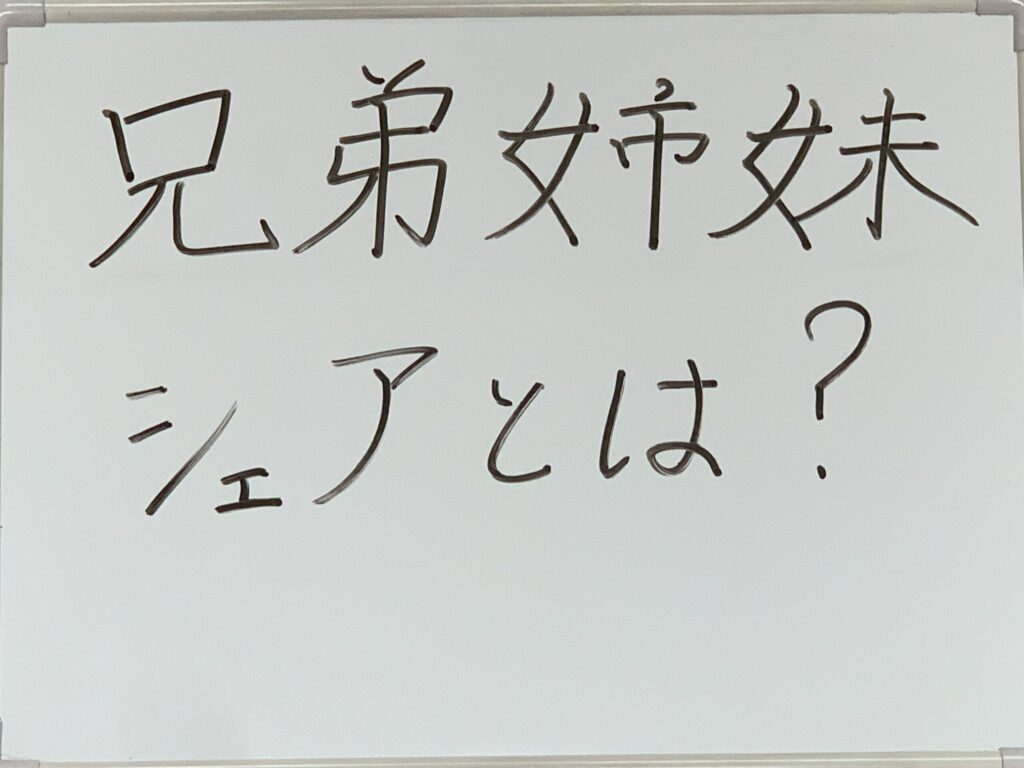 兄弟姉妹
シェアとは?